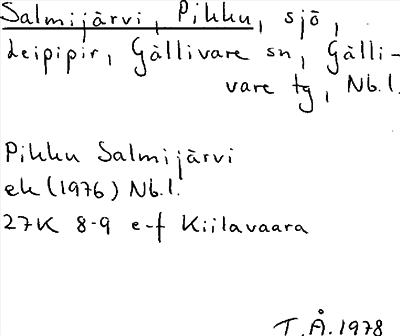 Salmijärvi, Pikku, sjö,
Leipipir, Gällivare sn, Gälli-
vare tg, Nb.l.
Pikku Salmijärvi
ek (1976) Nb.l.
27K 8-9 e-f Kiilavaara
T.Å. 1978